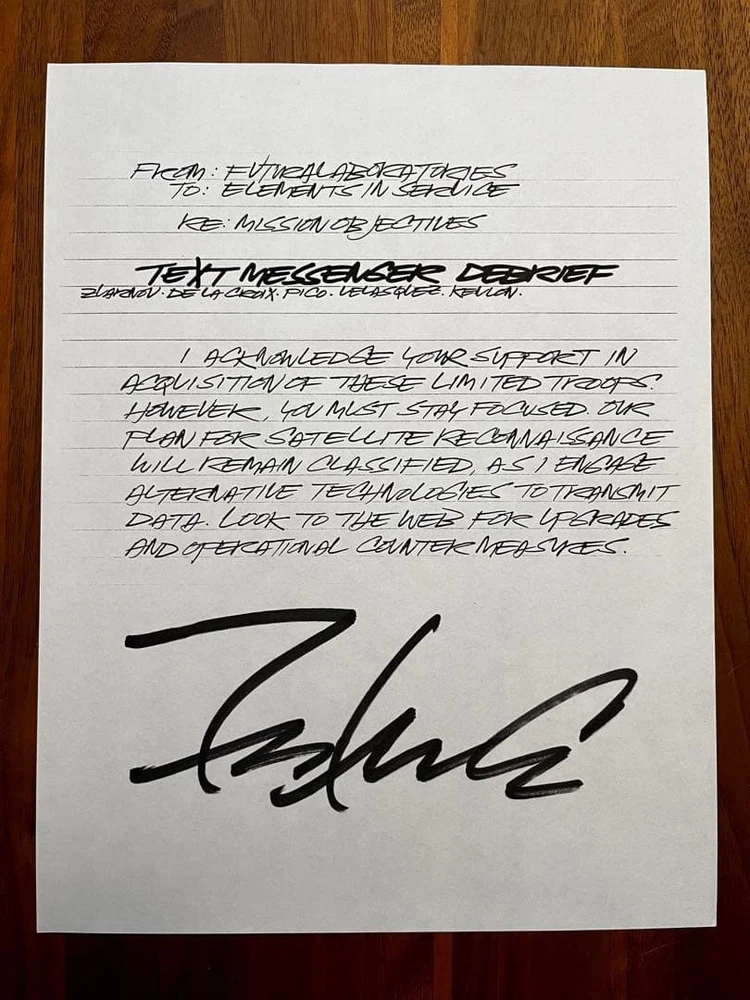 FROM: FUTURALABORATORIES
TO: ELEMENTS IN SERVICE
RE: MISSION OBJECTIVES
TEXT MESSENGER DEBRIEF
DE LA CROIX. PICO. VELASQUEZ.
I ACKNOWLEDGE YOUR SUPPORT IN
ACQUISITION OF THESE LIMITED TROOPS.
HOWEVER, YOU MUST STAY FOCUSED. OUR
PLAN FOR SATELLITE RECONNAISSANCE
WILL REMAIN CLASSIFIED, AS I ENGAGE
ALTERNATIVE TECHNOLOGIES TO TRANSMIT
DATA. LOOK TO THE WEB FOR UPGRADES
AND OPERATIONAL COUNTER MEASURES.